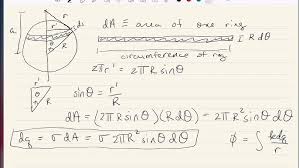 r
ds
dA ≡ area of one ring
a
r'
R
θ
R dθ
circumference of ring
2πr' = 2πR sinθ
r'
R
θ
sinθ = r'/R
dA = (2πR sinθ)(R dθ) = 2πR² sinθ dθ
dq = σ dA = σ 2πR² sinθ dθ
φ = ∫ kdq/r